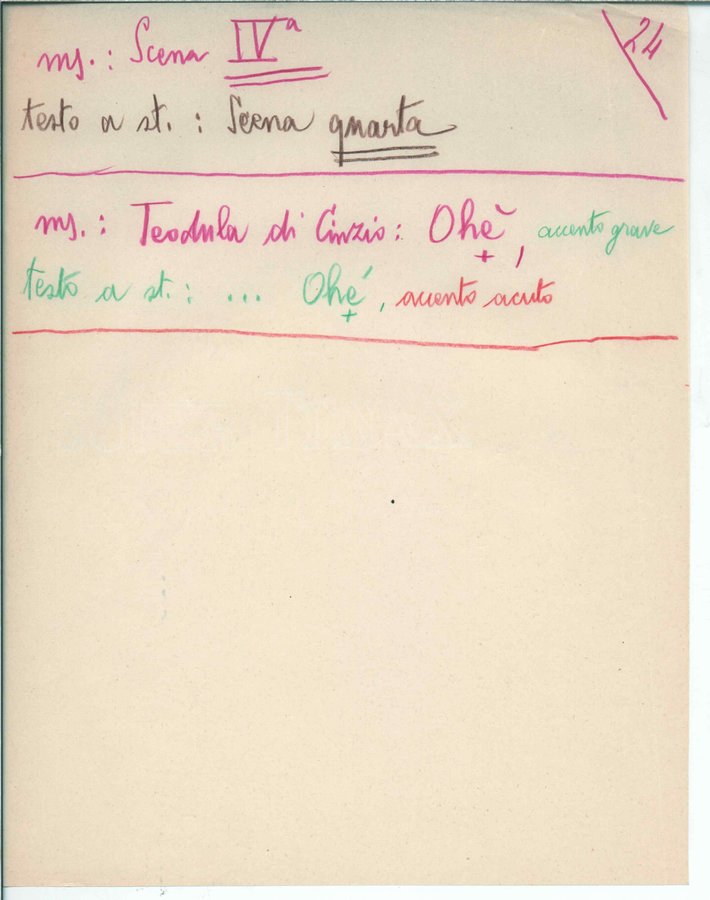 24
ms.: Scena IVª
testo a st.: Scena quarta
ms.: Teodula di Cinzio: Ohè, accento grave
+
testo a st.: ... Ohé, accento acuto
+